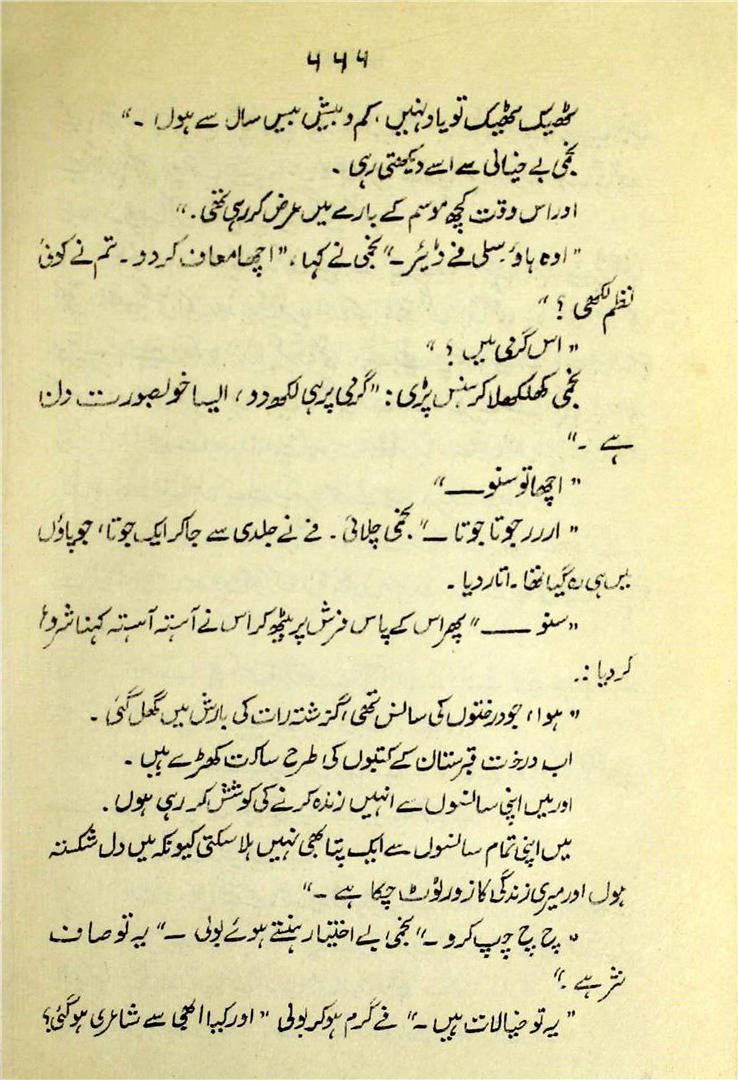 ۶۶۶
ٹھیک ٹھیک تو یاد نہیں، کم و بیش بیس سال سے ہوں ۔"
نجمی بے خیالی سے اسے دیکھتی رہی ۔
اور اس وقت کچھ موسم کے بارے میں عرض کر رہی تھی ۔"
"اوہ ہاؤ سلی فے ڈیئر ۔" نجمی نے کہا، "اچھا معاف کر دو ۔ تم نے کوئی
نظم لکھی ؟"
"اس گرمی میں ؟"
نجمی کھلکھلا کر ہنس پڑی : "گرمی پر ہی لکھ دو، ایسا خوبصورت دن
ہے ۔"
"اچھا تو سنو ——"
"اررر جوتا جوتا —" نجمی چلائی ۔ فے نے جلدی سے جا کر ایک جوتا، جو پاؤں
میں ہی رہ گیا تھا ۔ اتار دیا ۔
"سنو ——" پھر اس کے پاس فرش پر بیٹھ کر اس نے آہستہ آہستہ کہنا شروع
کر دیا :۔
"ہوا، جو درختوں کی سانس تھی، گزشتہ رات کی بارش میں گھل گئی ۔
اب درخت قبرستان کے کتبوں کی طرح ساکت کھڑے ہیں ۔
اور میں اپنی سانسوں سے انہیں زندہ کرنے کی کوشش کر رہی ہوں ۔
میں اپنی تمام سانسوں سے ایک پتا بھی نہیں ہلا سکتی کیونکہ میں دل شکستہ
ہوں اور میری زندگی کا زور ٹوٹ چکا ہے ۔"
"چ چ چ چپ کرو ۔" نجمی بے اختیار ہنستے ہوئے بولی — "یہ تو صاف
نثر ہے ۔"
"یہ تو خیالات ہیں ۔" فے گرم ہو کر بولی "اور کیا ابھی سے شاعری ہو گئی؟